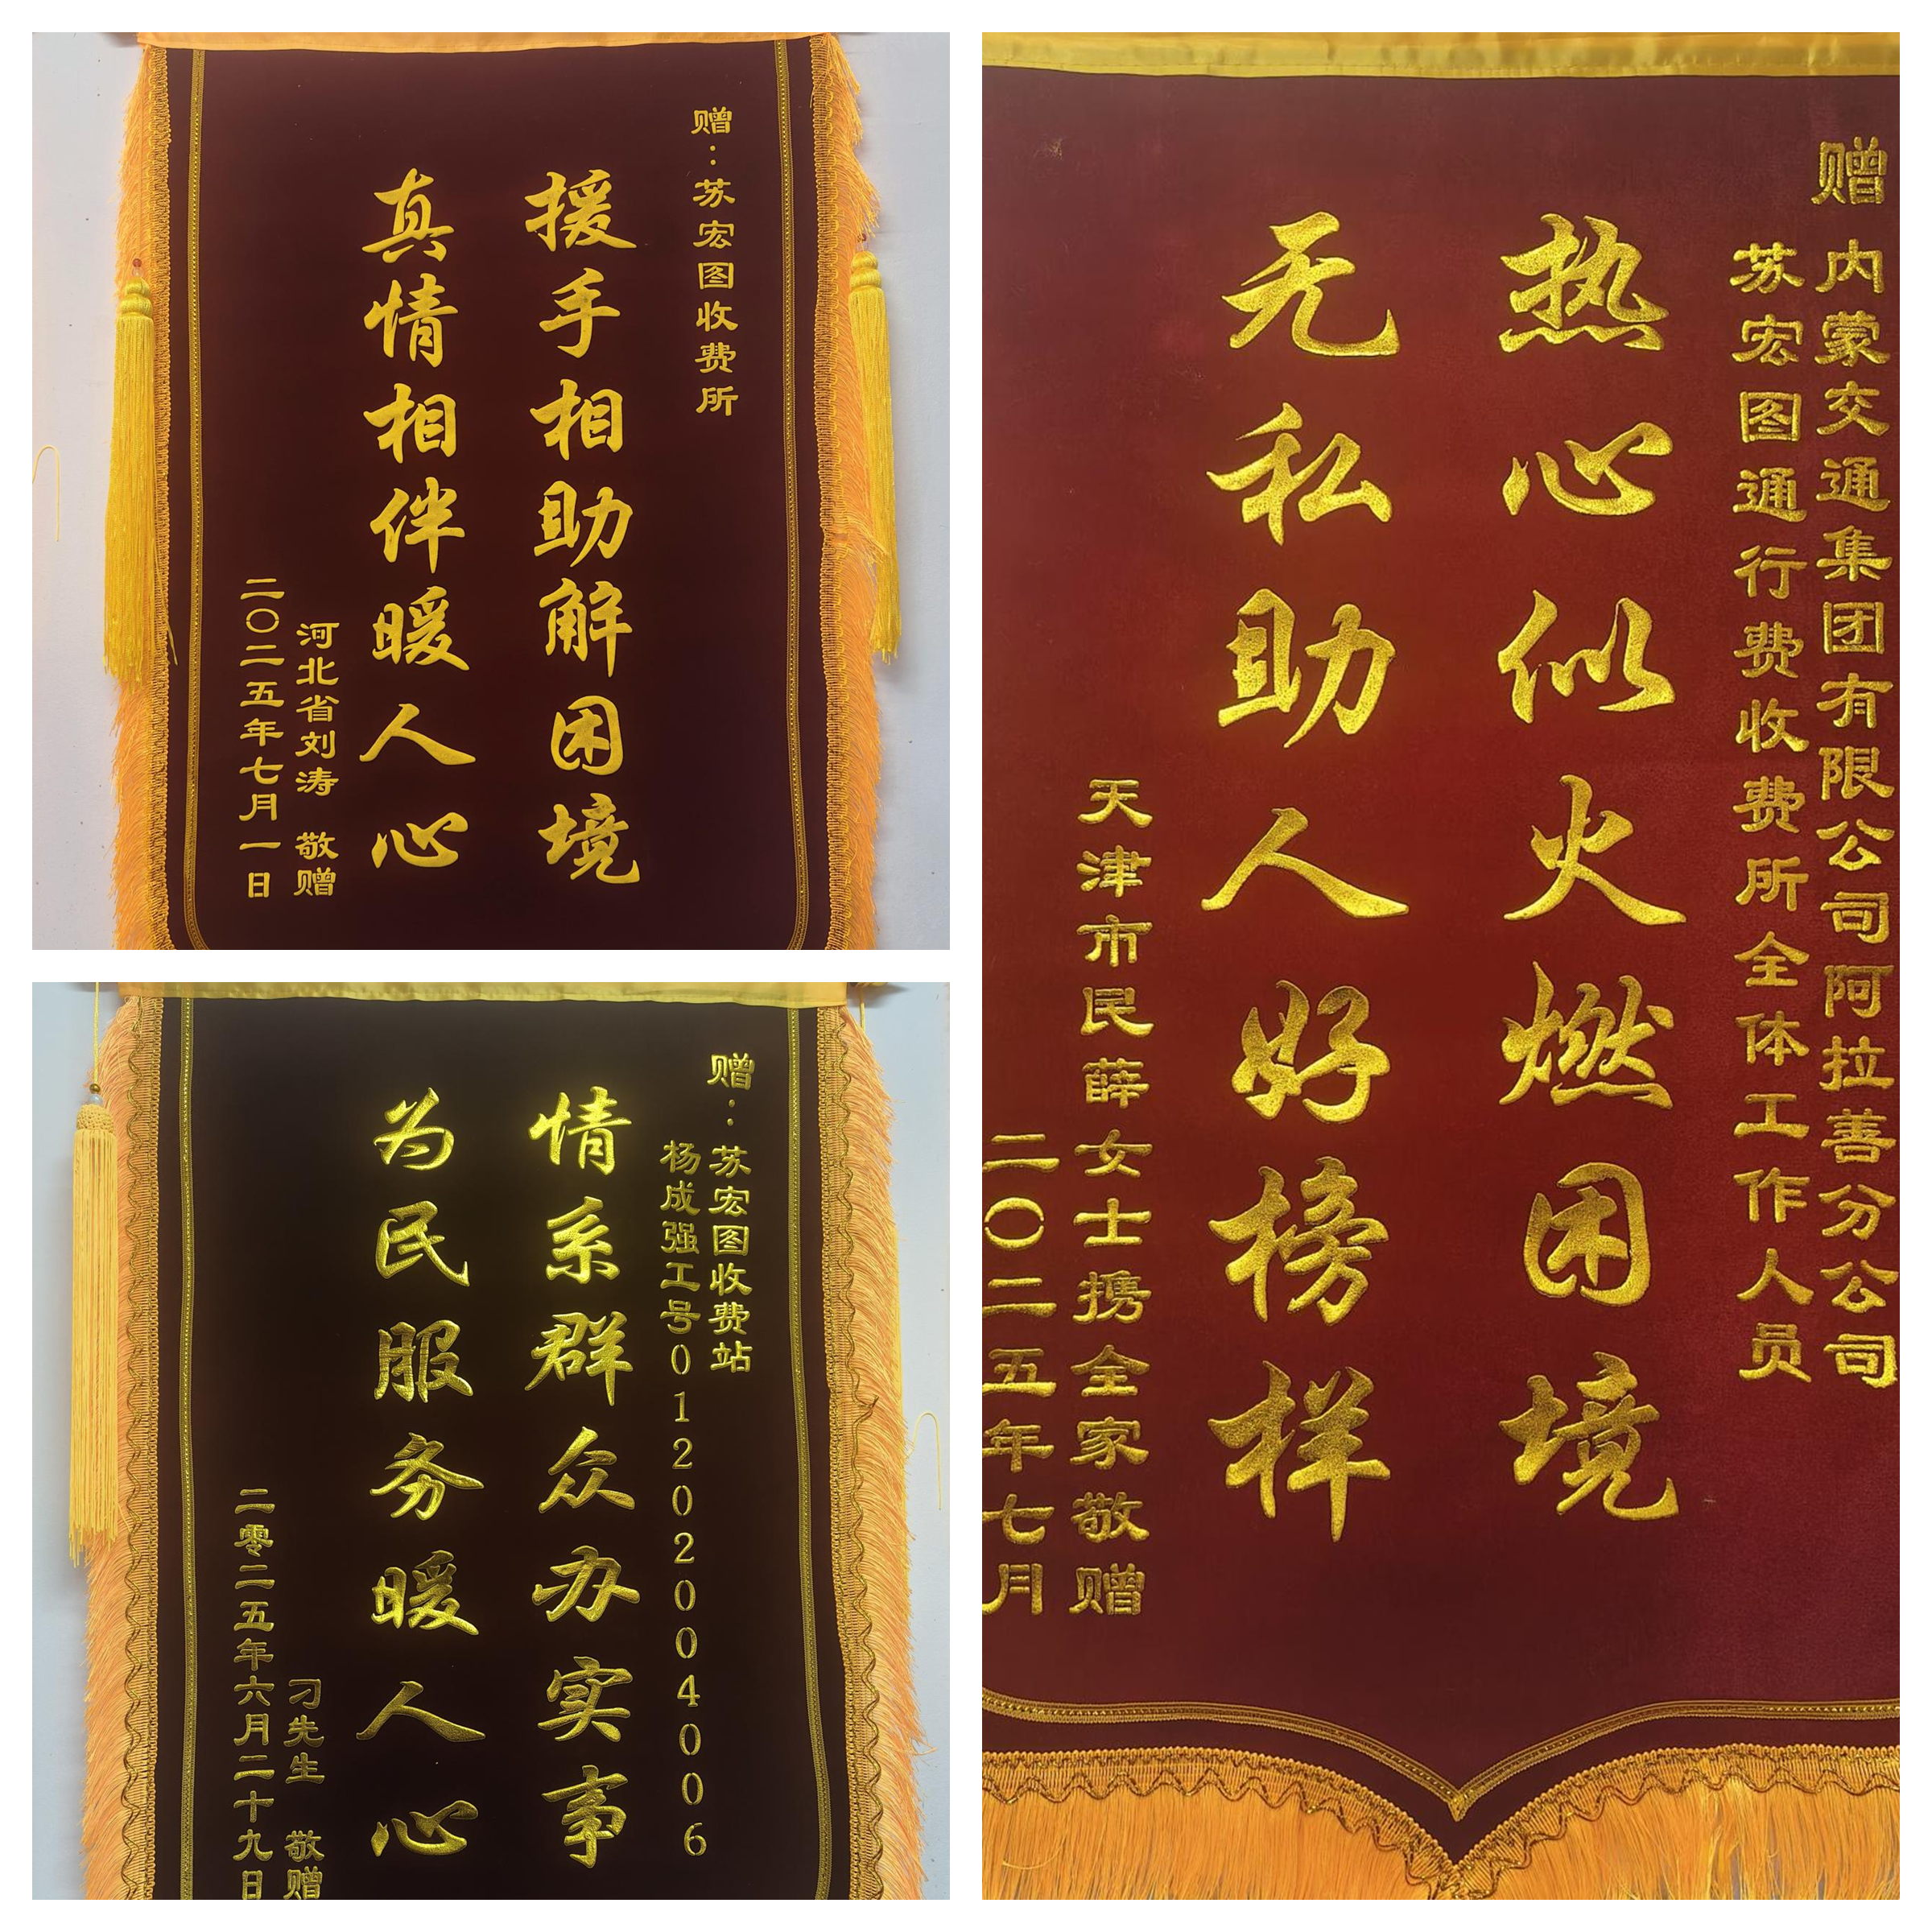 赠：苏宏图收费所
援手相助解困境
真情相伴暖人心
河北省刘涛 敬赠
二〇二五年七月一日
赠：苏宏图收费站
杨成强工号01202004006
情系群众办实事
为民服务暖人心
刁先生 敬赠
二零二五年六月二十九日
赠 内蒙交通集团有限公司阿拉善分公司
苏宏图通行费收费所全体工作人员
热心似火燃困境
无私助人好榜样
天津市民薛女士携全家敬赠
二〇二五年七月